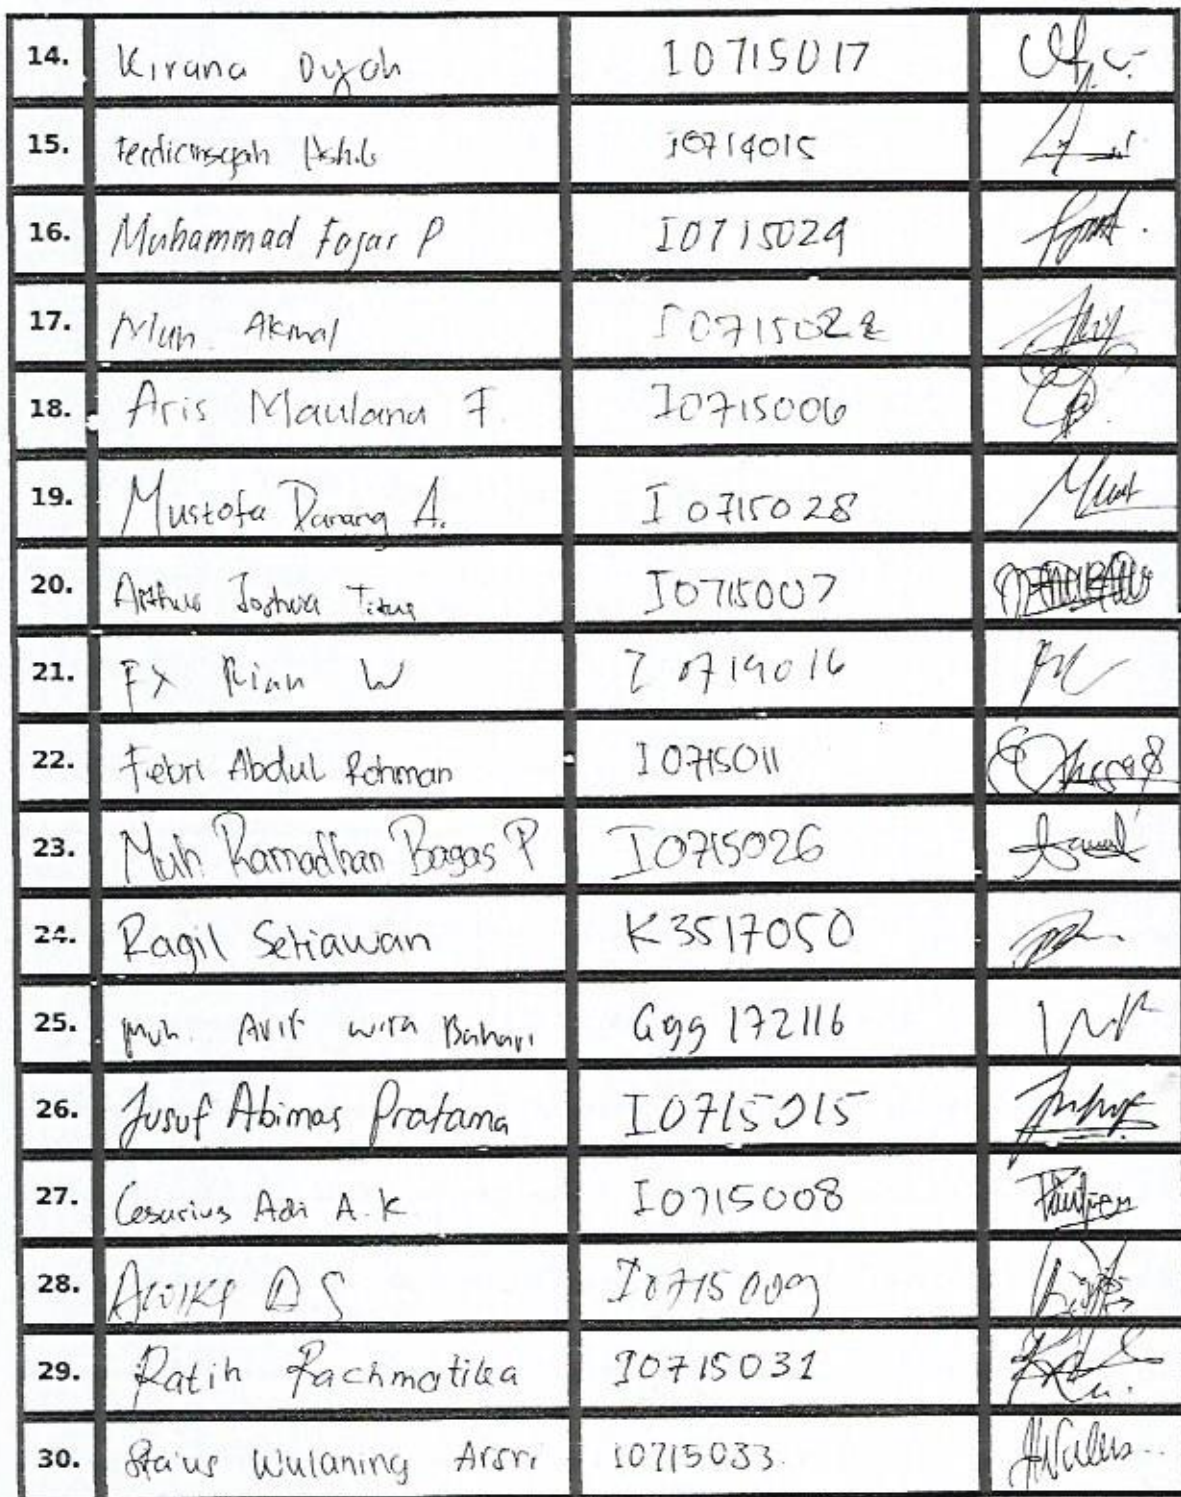 14. Kirana Dyah I0715017
15. Ferdiansyah I0714015
16. Muhammad Fajar P I0715029
17. Muh. Akmal I0715022
18. Aris Maulana F. I0715006
19. Mustofa Danang A. I0715028
20. Arthur Joshua Titus I0715007
21. FX Rian W I0714016
22. Febri Abdul Rohman I0715011
23. Muh Ramadhan Bagas P I0715026
24. Ragil Setiawan K3517050
25. Muh. Avif Wira Bahari G99172116
26. Jusuf Abimas Pratama I0715015
27. Cesarius Adi A.K I0715008
28. D S I0715009
29. Ratih Rachmatika I0715031
30. Wulaning I0715033